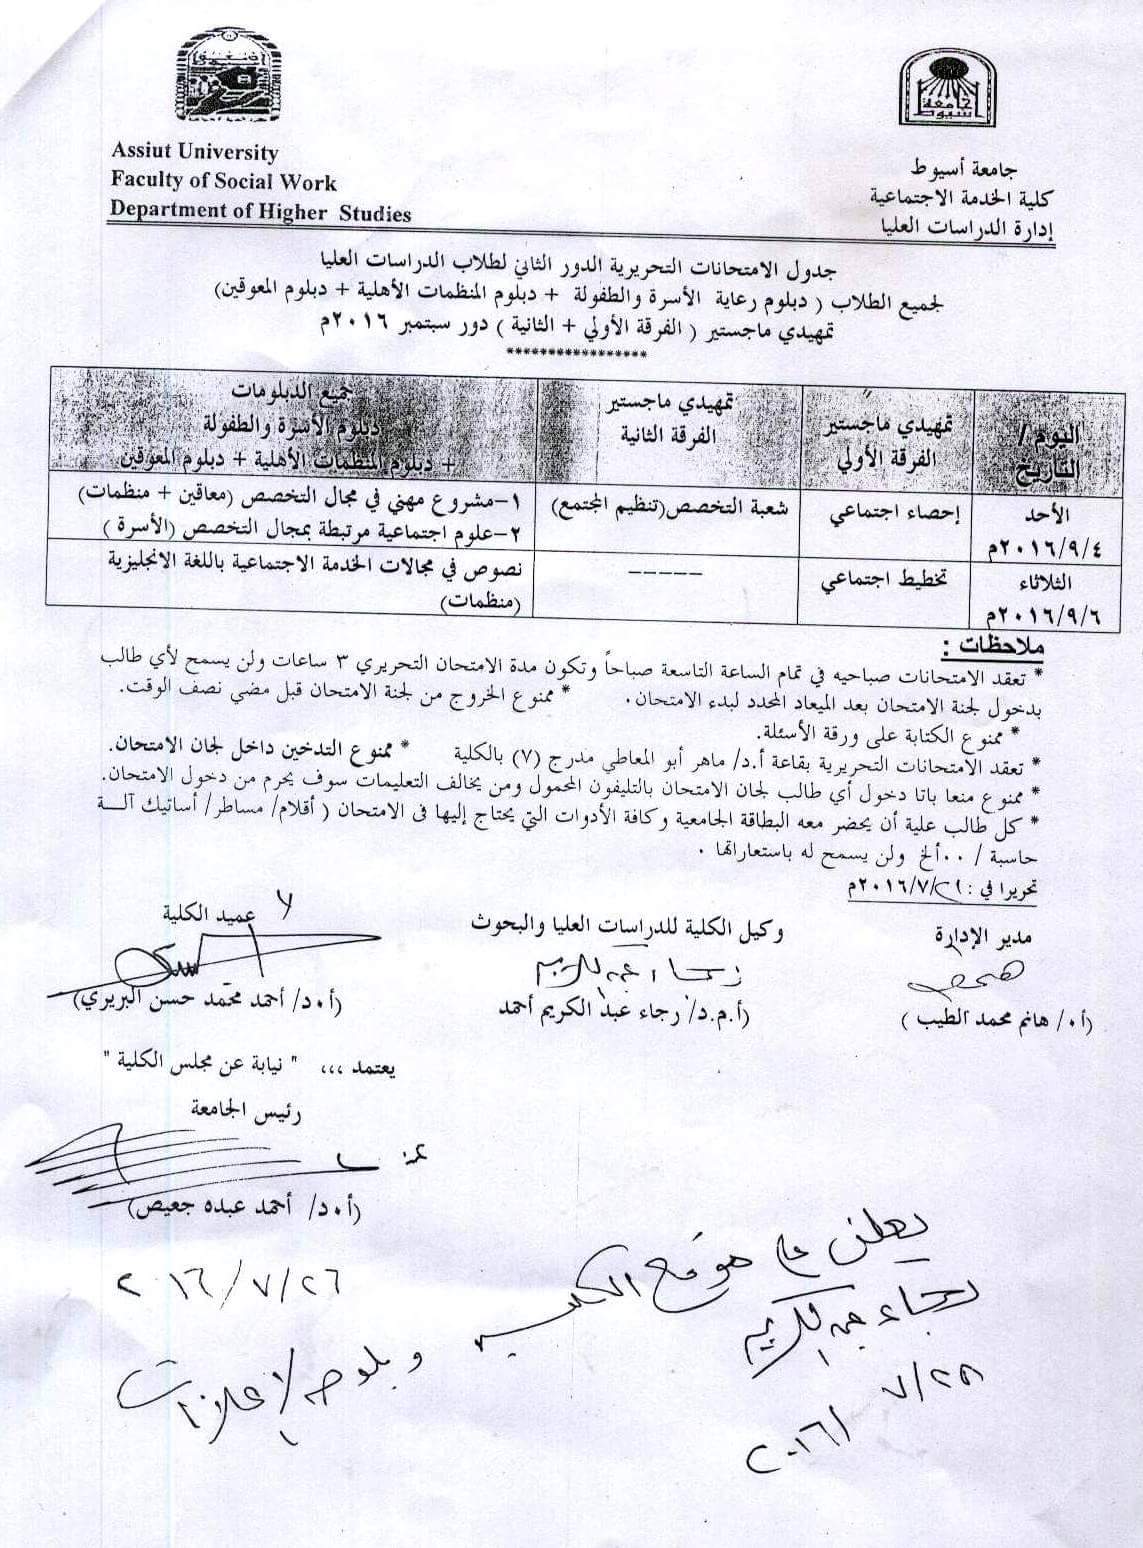 Assiut University
Faculty of Social Work
Department of Higher Studies
جامعة أسيوط
كلية الخدمة الاجتماعية
إدارة الدراسات العليا
جدول الامتحانات التحريرية الدور الثاني لطلاب الدراسات العليا
لجميع الطلاب ( دبلوم رعاية الأسرة والطفولة + دبلوم المنظمات الأهلية + دبلوم المعوقين)
تمهيدي ماجستير ( الفرقة الأولي + الثانية ) دور سبتمبر ٢٠١٦م
*****************
اليوم /
التاريخ
تمهيدي ماجستير
الفرقة الأولي
تمهيدي ماجستير
الفرقة الثانية
جميع الدبلومات
دبلوم الأسرة والطفولة
+ دبلوم المنظمات الأهلية + دبلوم المعوقين
الأحد
٢٠١٦/٩/٤م
إحصاء اجتماعي
شعبة التخصص(تنظيم المجتمع)
١-مشروع مهني في مجال التخصص (معاقين + منظمات)
٢-علوم اجتماعية مرتبطة بمجال التخصص (الأسرة )
الثلاثاء
٢٠١٦/٩/٦م
تخطيط اجتماعي
-----
نصوص في مجالات الخدمة الاجتماعية باللغة الانجليزية
(منظمات)
ملاحظات :
* تعقد الامتحانات صباحيه في تمام الساعة التاسعة صباحاً وتكون مدة الامتحان التحريري ٣ ساعات ولن يسمح لأي طالب
بدخول لجنة الامتحان بعد الميعاد المحدد لبدء الامتحان. * ممنوع الخروج من لجنة الامتحان قبل مضي نصف الوقت.
* ممنوع الكتابة على ورقة الأسئلة.
* تعقد الامتحانات التحريرية بقاعة أ.د/ ماهر أبو المعاطي مدرج (٧) بالكلية * ممنوع التدخين داخل لجان الامتحان.
* ممنوع منعا باتا دخول أي طالب لجان الامتحان بالتليفون المحمول ومن يخالف التعليمات سوف يحرم من دخول الامتحان.
* كل طالب علية أن يحضر معه البطاقة الجامعية وكافة الأدوات التي يحتاج إليها فى الامتحان ( أقلام/ مساطر/ أساتيك آلـــة
حاسبة / ..ألخ ولن يسمح له باستعارتها .
تحريرا في : ٢٠١٦/٧/٢١م
مدير الإدارة
وكيل الكلية للدراسات العليا والبحوث
عميد الكلية
رجاء عبد الكريم
(أ./ هانم محمد الطيب )
(أ.م.د/ رجاء عبد الكريم أحمد
(أ.د/ أحمد محمد حسن البريري)
يعتمد ،،، " نيابة عن مجلس الكلية "
رئيس الجامعة
(أ.د/ أحمد عبده جعيص)
٢٠١٦/٧/٢٦
يعلن على موقع الكلية
وبلوحة الإعلانات
رجاء عبد الكريم
٢٠١٦/٧/٢٨